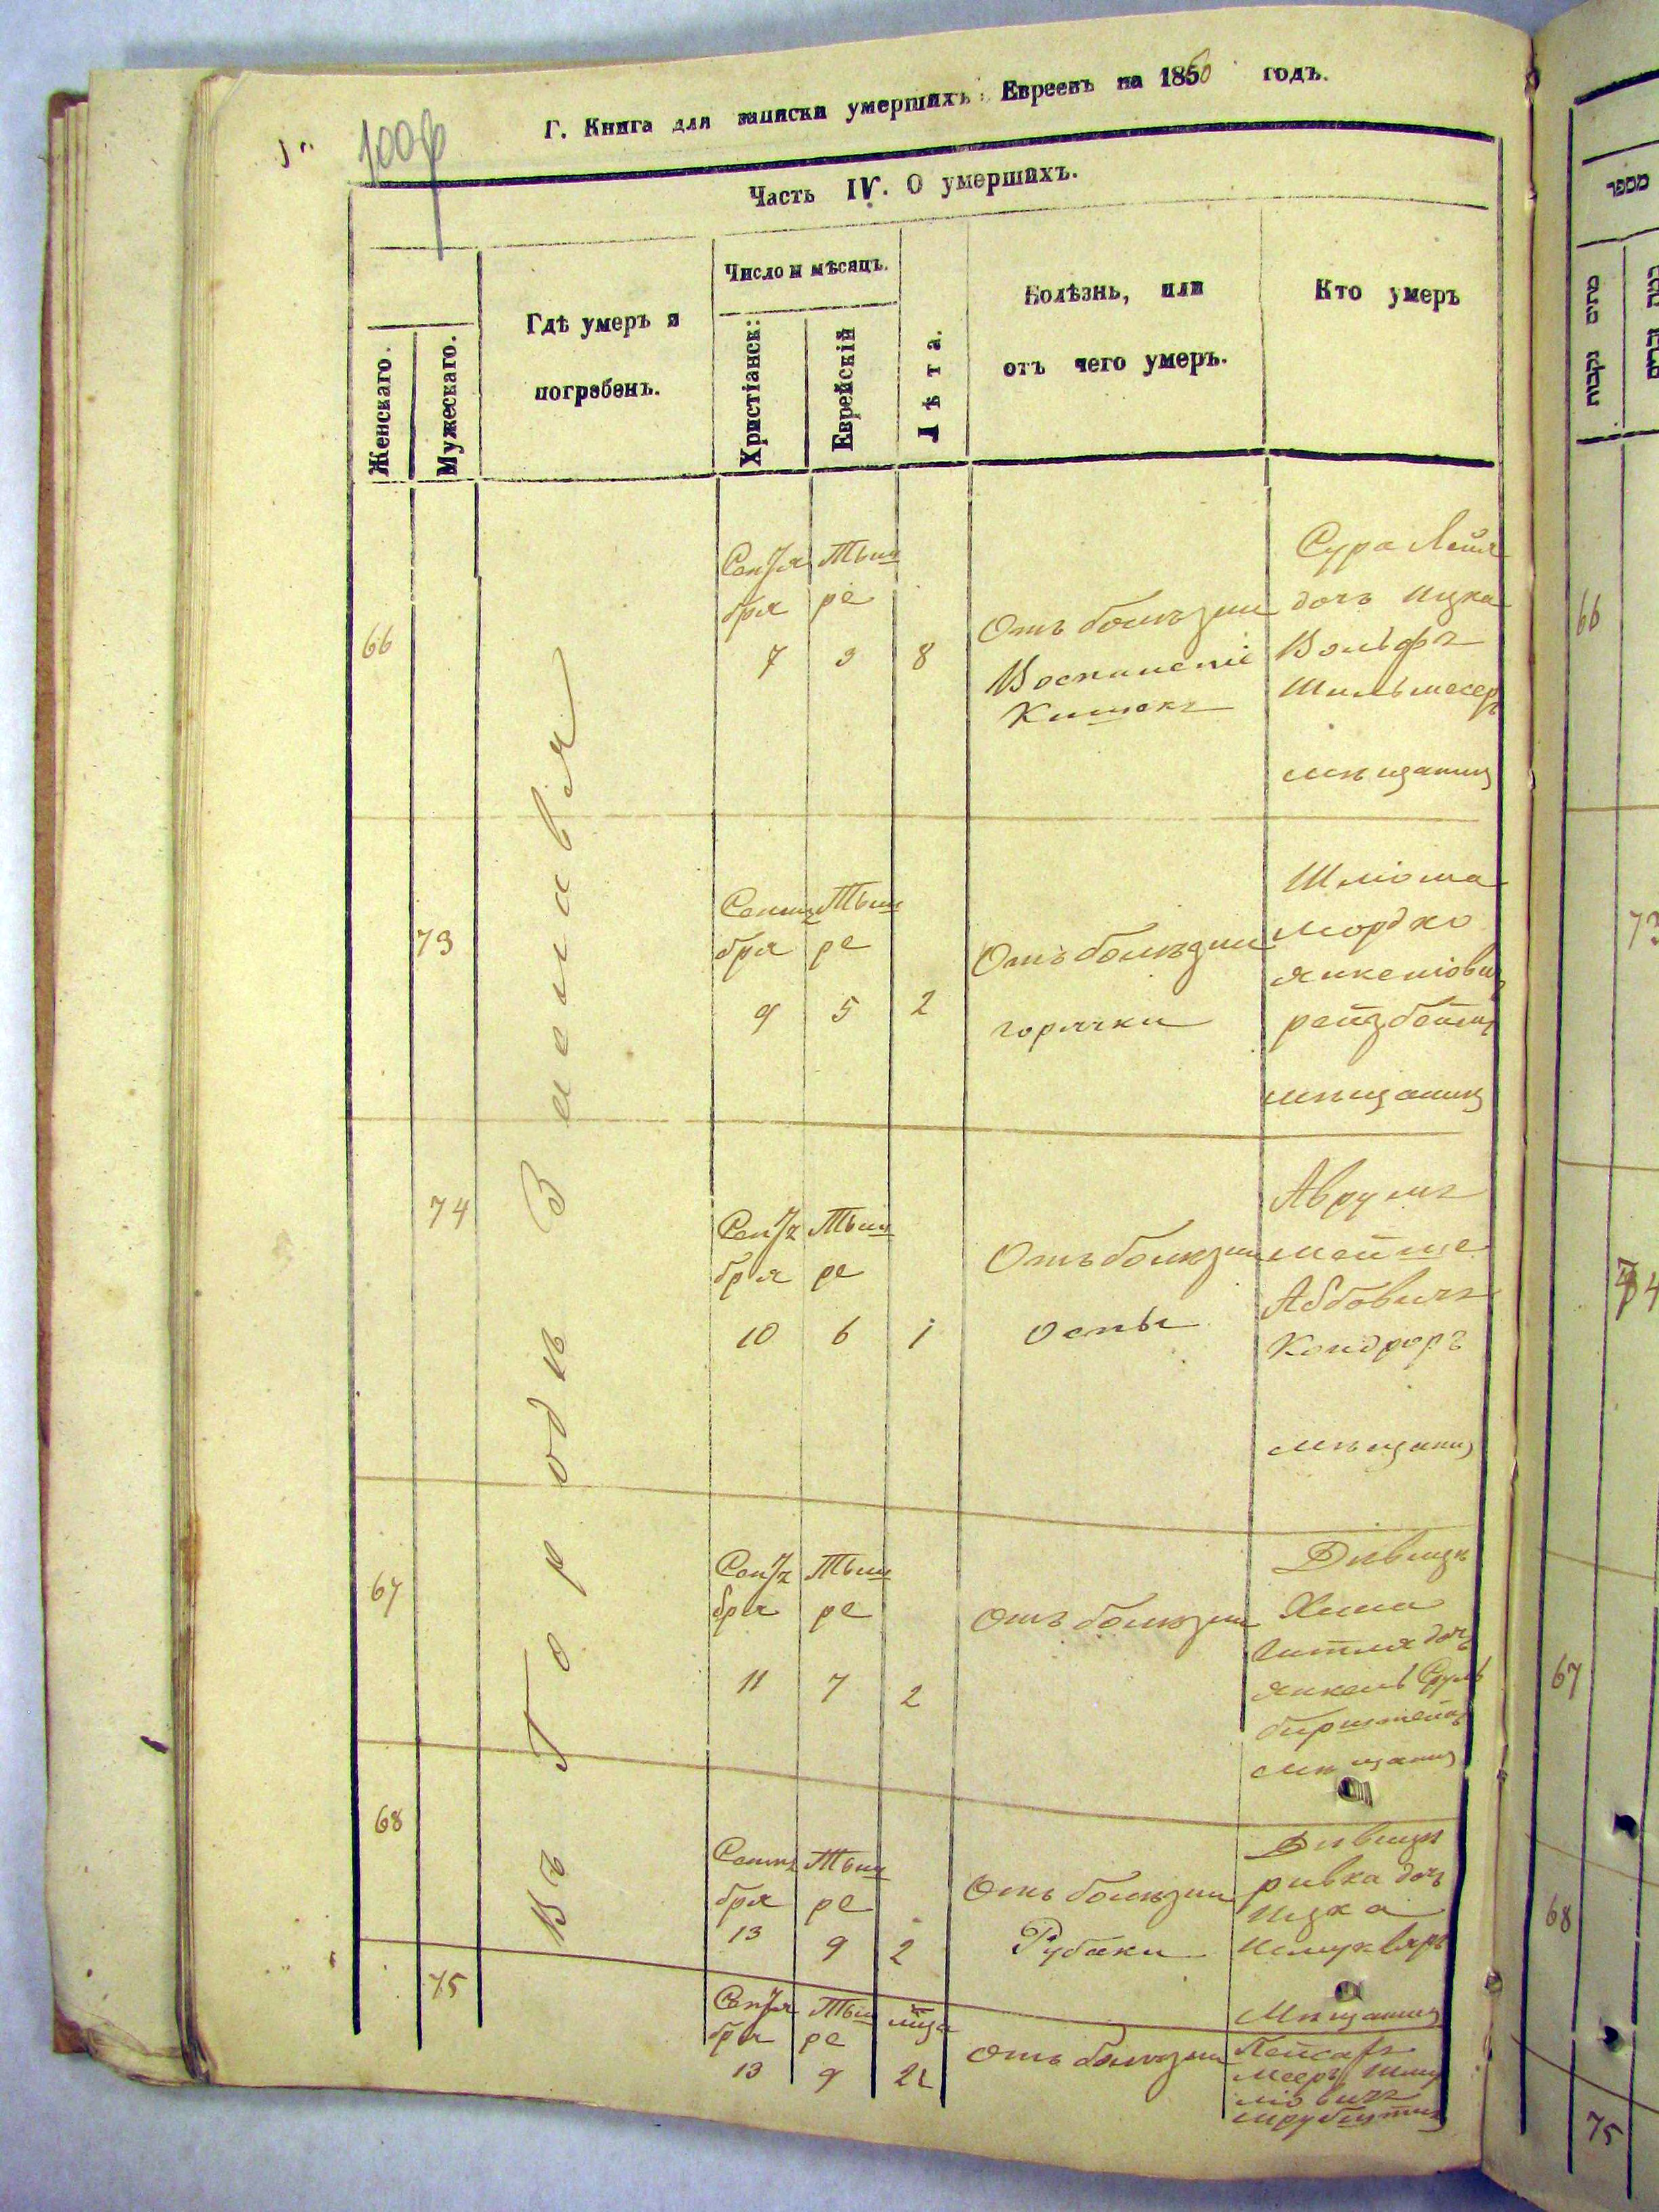 100 ф
Г. Книга для записки умершихъ Евреевъ на 1860 годъ.
Часть IV. О умершихъ.
Женскаго.
Мужескаго.
Гдѣ умеръ и
погребенъ.
Число и мѣсяцъ.
Христіанск:
Еврейскій
Лѣта.
Болѣзнь, или
отъ чего умеръ.
Кто умеръ
Въ Городѣ
66
Сентя
бря
7
Тыш
ре
3
8
Отъ болѣзни
Воспаленіе
Кишекъ
Сура Лейя
дочь Ицка
Вольфъ
Шильмесеръ
мѣщанинъ
73
Сентя
бря
9
Тыш
ре
5
2
Отъ болѣзни
горячки
Шліома
Мордко
Янкеліовичъ
мѣщанинъ
74
Сентя
бря
10
Тыш
ре
6
1
Отъ болѣзни
Оспы
Аврумъ
Мейше
Аббовичъ
Кондроръ
мѣщанинъ
67
Сентя
бря
11
Тыш
ре
7
2
Отъ болѣзни
Дѣвица
Хина
Гитля дочь
Янкель Сруль
бирштейнъ
мѣщанинъ
68
Сентя
бря
13
Тыш
ре
9
2
Отъ болѣзни
Рубаки
Дѣвица
ривка дочь
Ицка
Мѣщанинъ
75
Сентя
бря
13
Тыш
ре
9
мца
21
Отъ болѣзни
Пейсахъ
Мееръ Шмуліовичъ
מספר
מתים נקבות
66
73
74
67
68
75